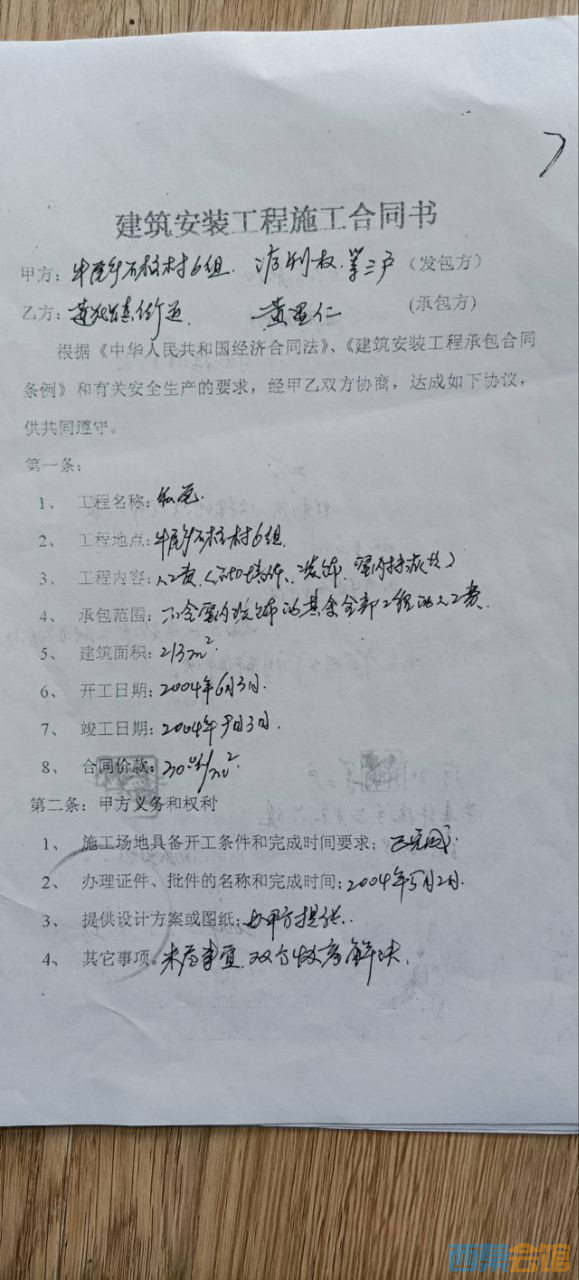 建筑安装工程施工合同书
甲方：牛尾乡石柱村6组 等三户（发包方）
乙方：黄 仁 （承包方）
根据《中华人民共和国经济合同法》、《建筑安装工程承包合同
条例》和有关安全生产的要求，经甲乙双方协商，达成如下协议，
供共同遵守。
第一条：
1、 工程名称：
2、 工程地点：牛尾乡石柱村6组
3、 工程内容：人工费
4、 承包范围：不含室内装饰的其余全部工程的人工费.
5、 建筑面积：213m²
6、 开工日期：2004年6月3日.
7、 竣工日期：2004年9月3日.
8、 合同价款：/m²
第二条：甲方义务和权利
1、 施工场地具备开工条件和完成时间要求：已完成
2、 办理证件、批件的名称和完成时间：2004年5月2日.
3、 提供设计方案或图纸：由甲方提供.
4、 其它事项。未尽事宜，双方协商解决.
西祠会馆